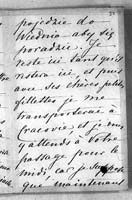 pojedzie do
Wiednia aby się
poradzić. Je
reste ici tant qu'il
restera ici, et puis
avec ses chères petites
fillettes je me
transporterai à
Cracovie, et je m'y
y attends à votre
passage pour le
midi, car je suppose
que maintenant